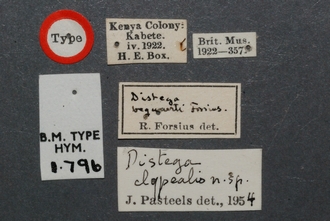 Type
Kenya Colony:
Kabete.
iv. 1922.
H. E. Box.
Brit. Mus.
1922—357.
B.M. TYPE
HYM.
1.796
Distega
bequaerti Forsius.
R. Forsius det.
Distega
clypealis n. sp.
J. Pasteels det., 1954